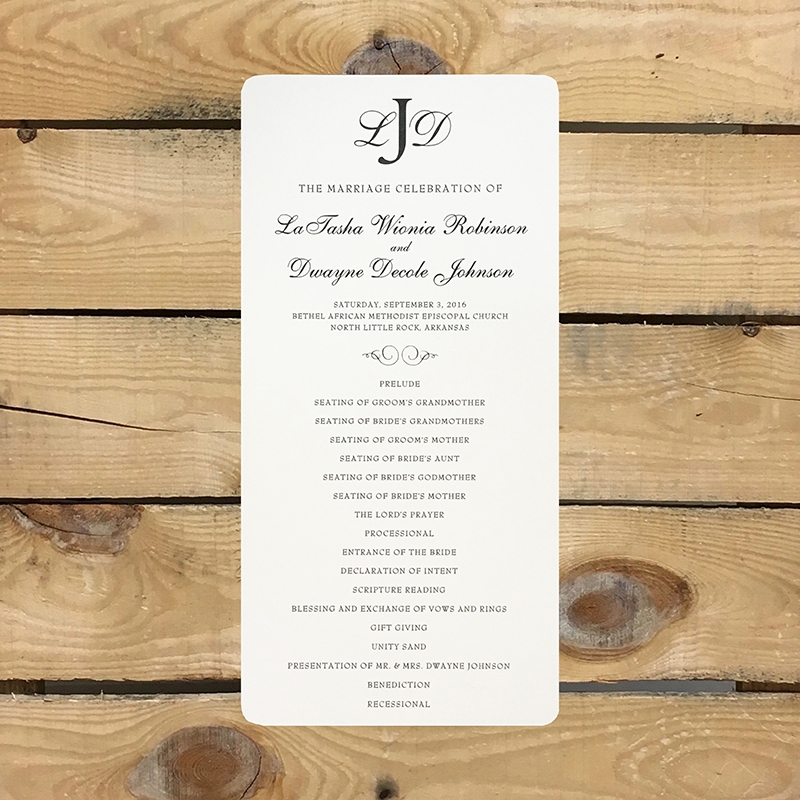 LJD
THE MARRIAGE CELEBRATION OF
LaTasha Wionia Robinson
and
Dwayne Decole Johnson
SATURDAY, SEPTEMBER 3, 2016
BETHEL AFRICAN METHODIST EPISCOPAL CHURCH
NORTH LITTLE ROCK, ARKANSAS
PRELUDE
SEATING OF GROOM'S GRANDMOTHER
SEATING OF BRIDE'S GRANDMOTHERS
SEATING OF GROOM'S MOTHER
SEATING OF BRIDE'S AUNT
SEATING OF BRIDE'S GODMOTHER
SEATING OF BRIDE'S MOTHER
THE LORD'S PRAYER
PROCESSIONAL
ENTRANCE OF THE BRIDE
DECLARATION OF INTENT
SCRIPTURE READING
BLESSING AND EXCHANGE OF VOWS AND RINGS
GIFT GIVING
UNITY SAND
PRESENTATION OF MR. & MRS. DWAYNE JOHNSON
BENEDICTION
RECESSIONAL